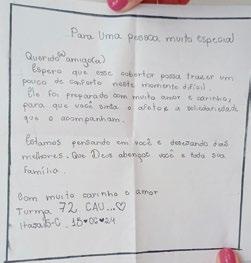 Para Uma pessoa muito especial
Querido(a) amigo(a)
Espero que esse cobertor possa trazer um
pouco de conforto neste momento difícil.
Ele foi preparado com muito amor e carinho,
para que você sinta o afeto e a solidariedade
que o acompanham.
Estamos pensando em você e desejando dias
melhores. Que Deus abençoe você e toda sua
família.
Com muito carinho e amor
Turma 72, CAU...♡
15♥06♥24